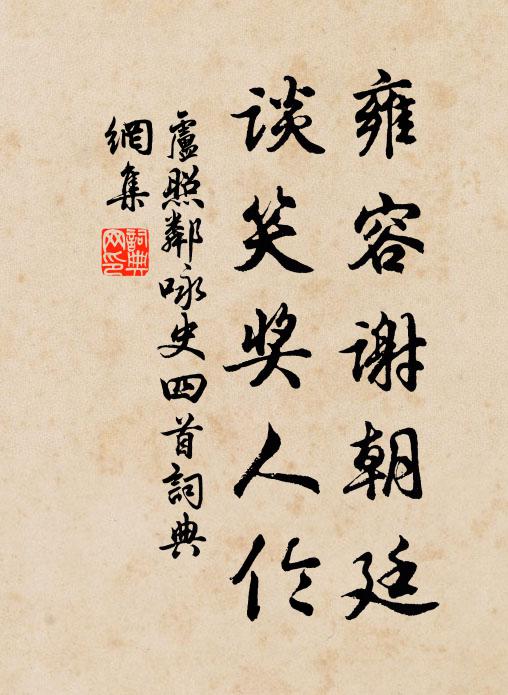 雍容谢朝廷
谈笑奖人伦
盧照鄰咏史四首詞典
網集
詞典網印